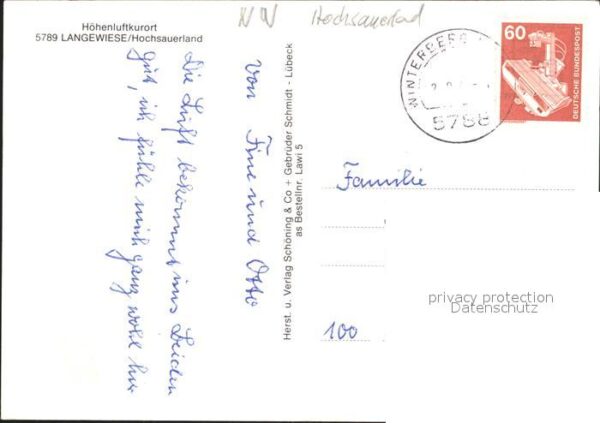 NW Hochsauerland
Höhenluftkurort
5789 LANGEWIESE/Hochsauerland
Die Luft bekommt uns Beiden
gut, ich fühle mich ganz wohl hier
Von Fine und Otto
Herst. u. Verlag Schöning & Co + Gebrüder Schmidt - Lübeck
as Bestellnr. Lawi 5
WINTERBERG
5788
60
DEUTSCHE BUNDESPOST
Familie
privacy protection
Datenschutz
100